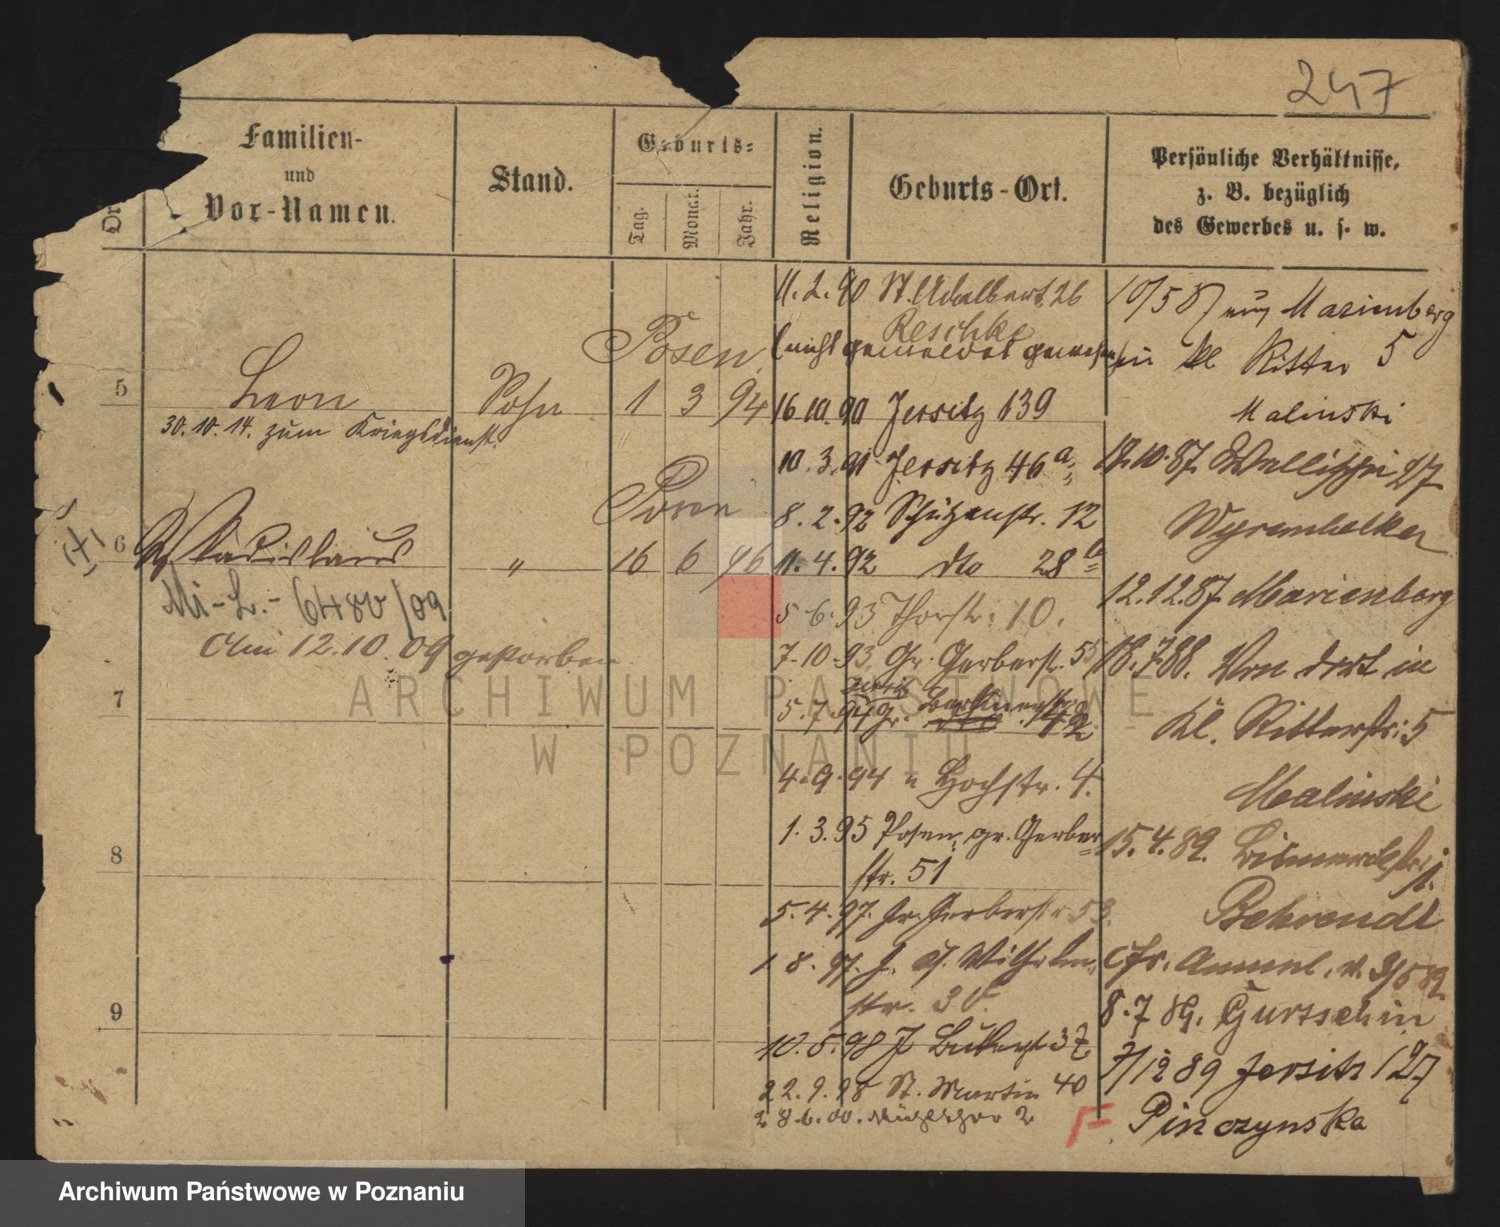 247
Familien-
und
Vor-Namen.
Stand.
Geburts=
Tag.
Monat.
Jahr.
Religion.
Geburts-Ort.
Persönliche Verhältnisse,
z. B. bezüglich
des Gewerbes u. s. w.
5
Leon
Sohn
Posen
1 3 94
30.10.14. zum Kriegsdienst.
6
Wladislaus
"
Posen
16 6 96
Mi-L.- 6480/09
Am 12.10.09 gestorben
7
8
9
11.2.90 St. Adalbert 26
Reschke
(nicht gemeldet gewesen)
16.10.90 Jersitz 139
10.3.91 Jersitz 46a
8.2.92 Schützenstr. 12
11.4.92 dto 28b
5.6.93 Thorstr. 10.
7.10.93 Gr. Gerberst. 55
5.7.94 Gr. 42
4.9.94 Hochstr. 4.
1.3.95 Posen, gr. Gerber
str. 51
5.4.97. Gr. Gerberstr 53.
1.8.97. J. Wilhelm
str. 30
10.5.98 J 37
22.9.98 St. Martin 40
28.6.00. 2
10/5 87 Marienberg
in kl Ritter 5
Malinski
12.10.87. Wallischei 27
Wyrembelker
12.12.87. Marienberg
18.7.88. Von dort in
Kl. Ritterstr. 5
Malinski
15.4.89. Bismarckstr. 1.
Behrendt
cfr. Anmel. v. 3/5 89
8.7 89. Gurtschin
7/12 89 Jersitz 127
F. Pinczynska
ARCHIWUM PAŃSTWOWE
W POZNANIU
Archiwum Państwowe w Poznaniu